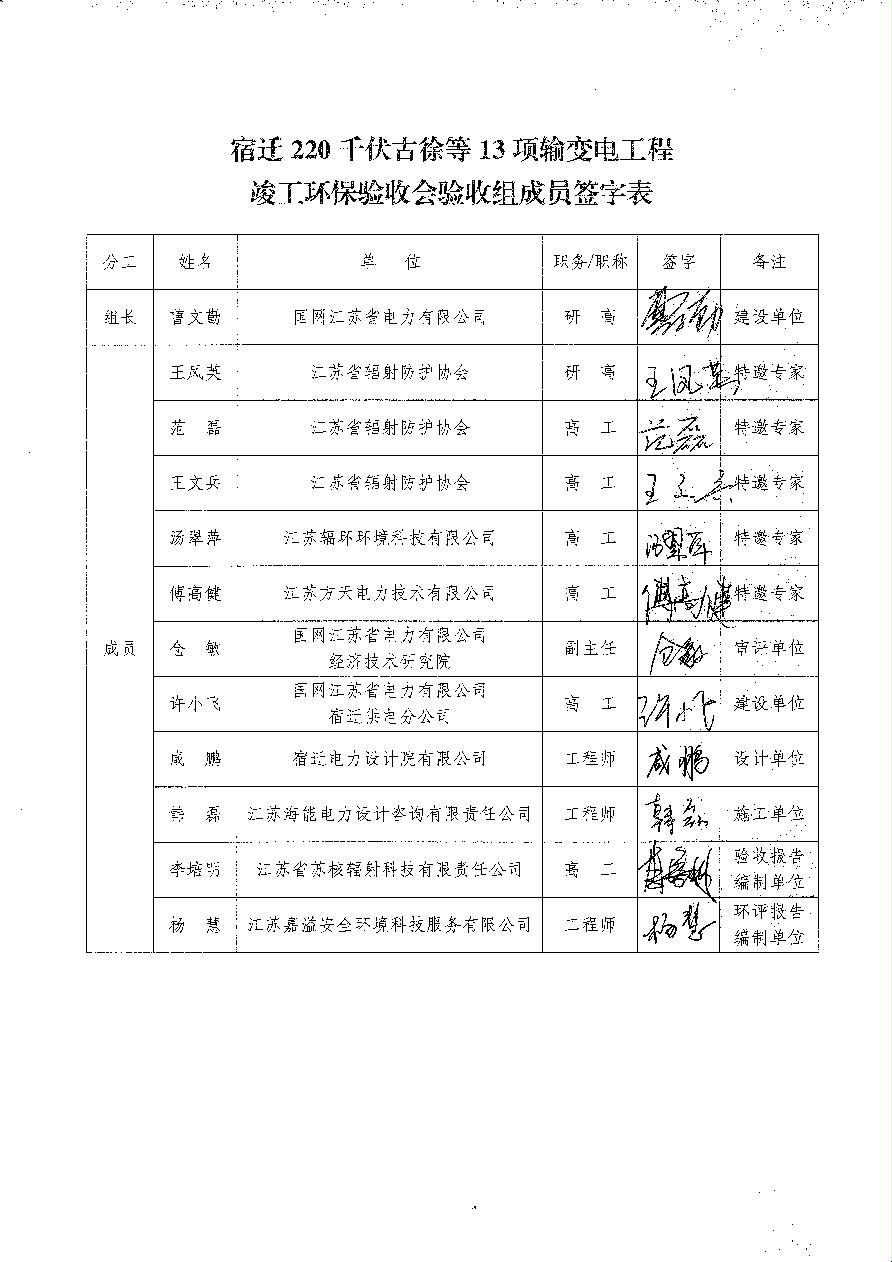 宿迁 220 千伏古徐等 13 项输变电工程
竣工环保验收会验收组成员签字表
分工 姓名 单 位 职务/职称 签字 备注
组长 曹文勤 国网江苏省电力有限公司 研 高 曹文勤 建设单位
成员
王凤英 江苏省辐射防护协会 研 高 王凤英 特邀专家
范 磊 江苏省辐射防护协会 高 工 范磊 特邀专家
王文兵 江苏省辐射防护协会 高 工 王文兵 特邀专家
汤翠萍 江苏辐环环境科技有限公司 高 工 汤翠萍 特邀专家
傅高健 江苏方天电力技术有限公司 高 工 傅高健 特邀专家
仓 敏 国网江苏省电力有限公司
经济技术研究院 副主任 仓敏 审评单位
许小飞 国网江苏省电力有限公司
宿迁供电分公司 高 工 许小飞 建设单位
咸 鹏 宿迁电力设计院有限公司 工程师 咸鹏 设计单位
韩 磊 江苏海能电力设计咨询有限责任公司 工程师 韩磊 施工单位
李培 江苏省苏核辐射科技有限责任公司 高 工 验收报告
编制单位
杨 慧 江苏嘉溢安全环境科技服务有限公司 工程师 杨慧 环评报告
编制单位